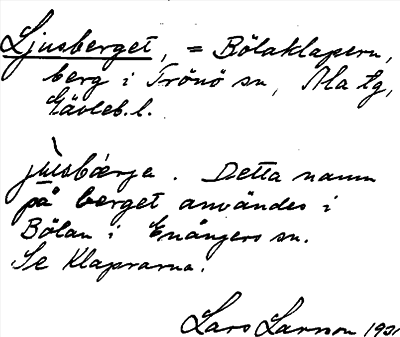 Ljusberget, = Bölaklapern,
berg i Trönö sn, Ala tg,
Gävleb. l.
jùsbærje. Detta namn
på berget användes i
Bölan i Enångers sn.
Se Klaprarna.
Lars Larsson 1931